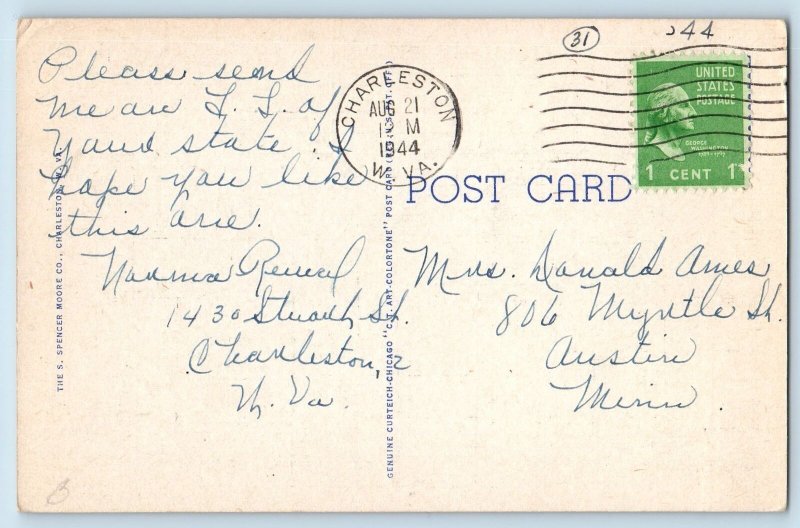 31
944
UNITED
STATES
POSTAGE
GEORGE
WASHINGTON
1 CENT 1¢
CHARLESTON
AUG 21
1944
W. VA.
POST CARD
Please send
me an L. L. of
Your state. I
hope you like
this one.
Norma
1430 Stuart St.
Charleston, 2
W. Va.
Mrs. Donald Ames
806 Myrtle St.
Austin
Minn.
THE S. SPENCER MOORE CO., CHARLESTON, W. VA.
GENUINE CURTEICH-CHICAGO "C.T. ART-COLORTONE" POST CARD (REG. U.S. PAT. OFF.)